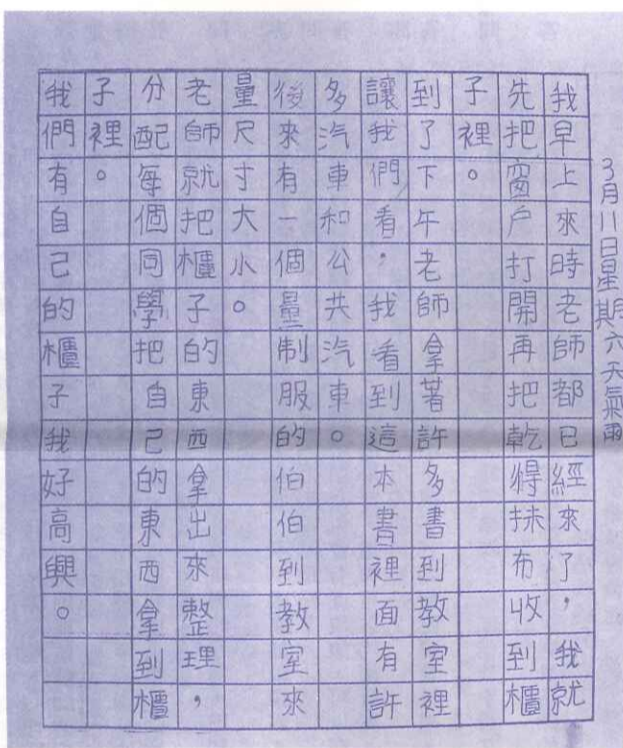 3月11日星期六天氣雨
我早上來時老師都已經來了，我就
先把窗户打開再把乾得抹布收到櫃
子裡。
到了下午老師拿著許多書到教室裡
讓我們看，我看到這本書裡面有許
多汽車和公共汽車。
後來有一個量制服的伯伯到教室來
量尺寸大小。
老師就把櫃子的東西拿出來整理，
分配每個同學把自己的東西拿到櫃
子裡。
我們有自己的櫃子我好高興。